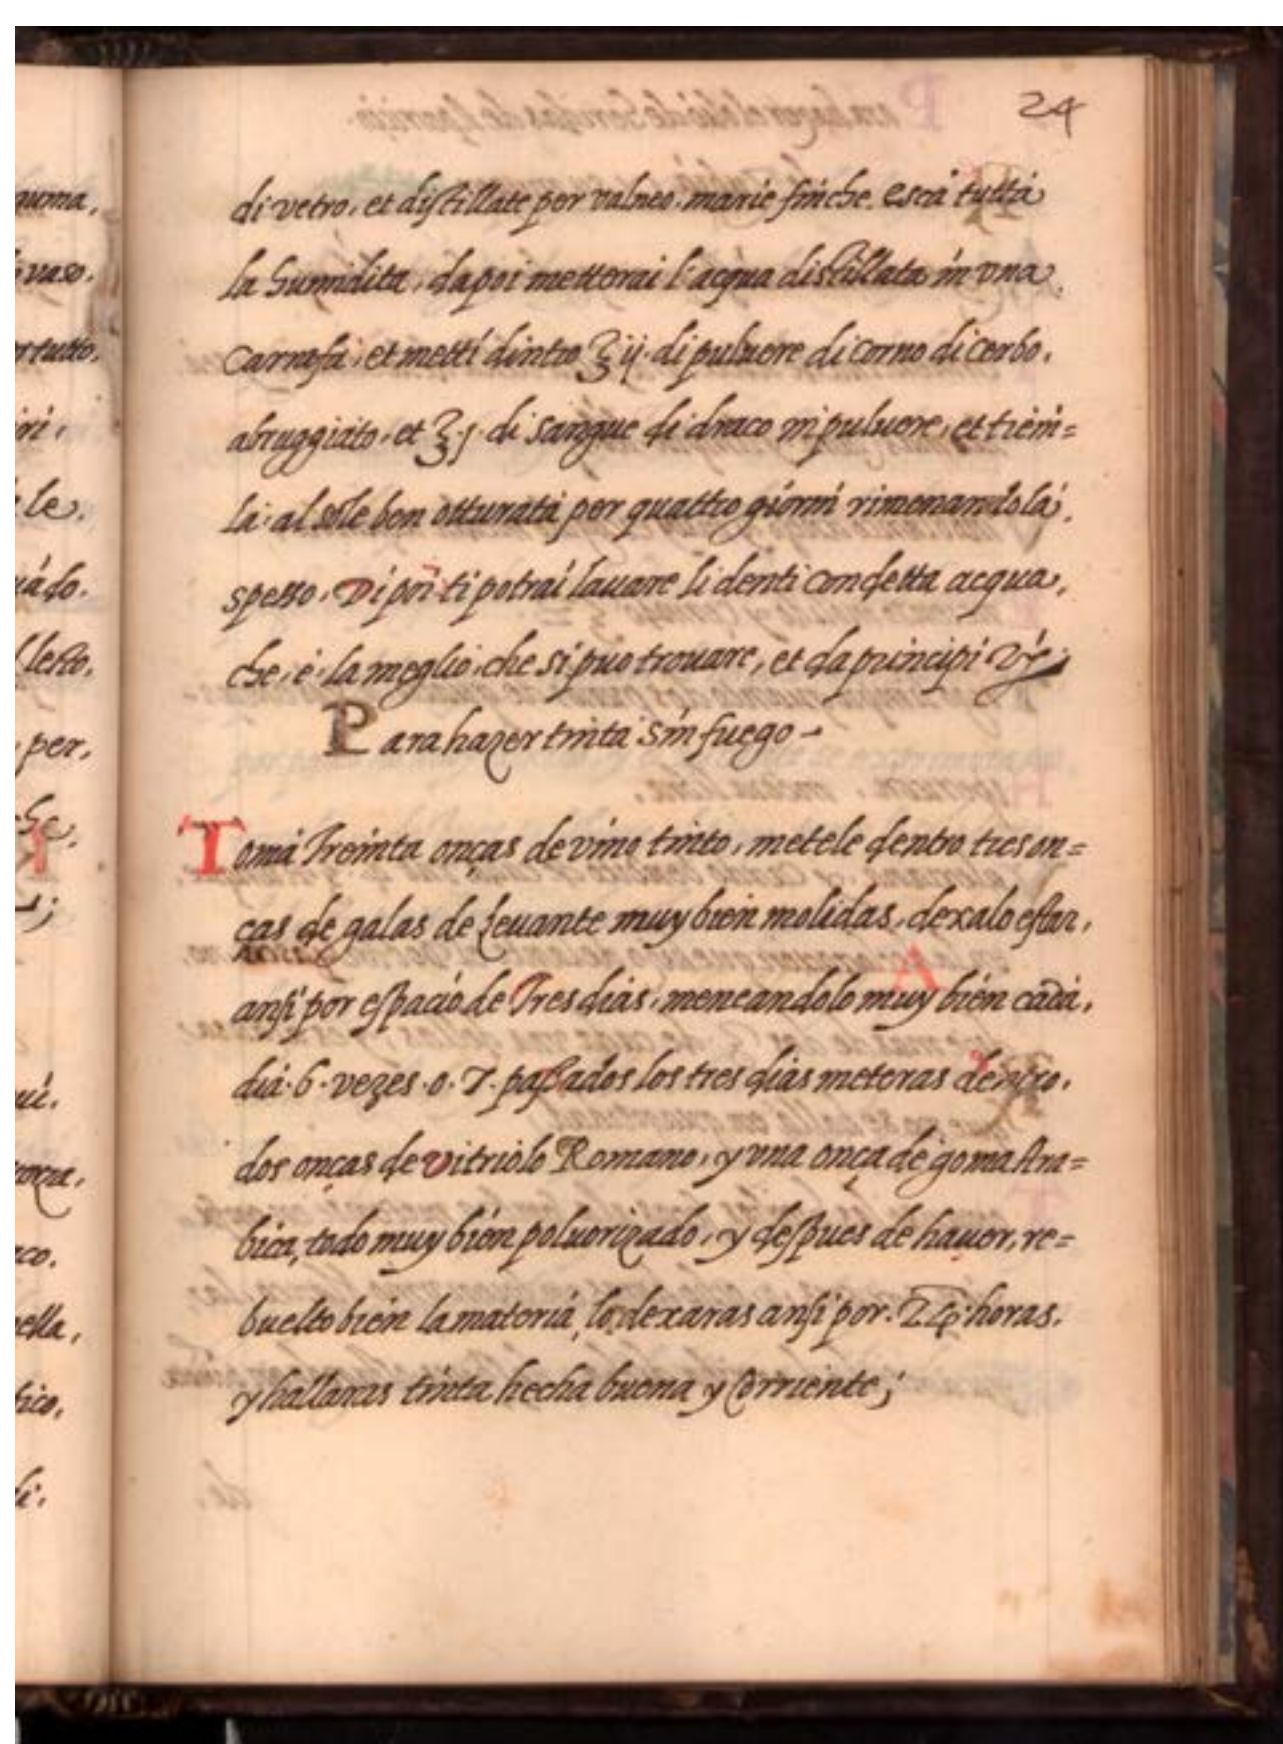 24
di vetro, et distillate per valneo. marie finche. escia tutta
la humidita, da poi metterai l'acqua distillata in vna
Carrafa, et metti dintro ℥ ij. di puluere di Corno di Cerbo.
abruggiato, et ℥.j. di sangue di draco in puluere, et tien=
la. al sole ben otturata per quattro giorni rimenandola.
spesso. Di poi ti potrai lauare li denti con detta acqua,
che, è, la meglio. che si puo trouare, et da principi
Para hazer tinta sin fuego
Toma Treinta onças de vino tinto, metele dentro tres on=
cas de galas de Leuante muy bien molidas, dexalo estar,
ansi por espacio de Tres dias, meneandolo muy bien cada,
dia. 6. vezes. o. 7. passados los tres dias meteras dentro.
dos onças de vitriolo Romano, y vna onça de goma Ara=
bica, todo muy bien poluorizado, y despues de hauer, re=
buelto bien la materia, lo dexaras ansi por. 24. horas.
y hallaras tinta hecha buena y Corriente;